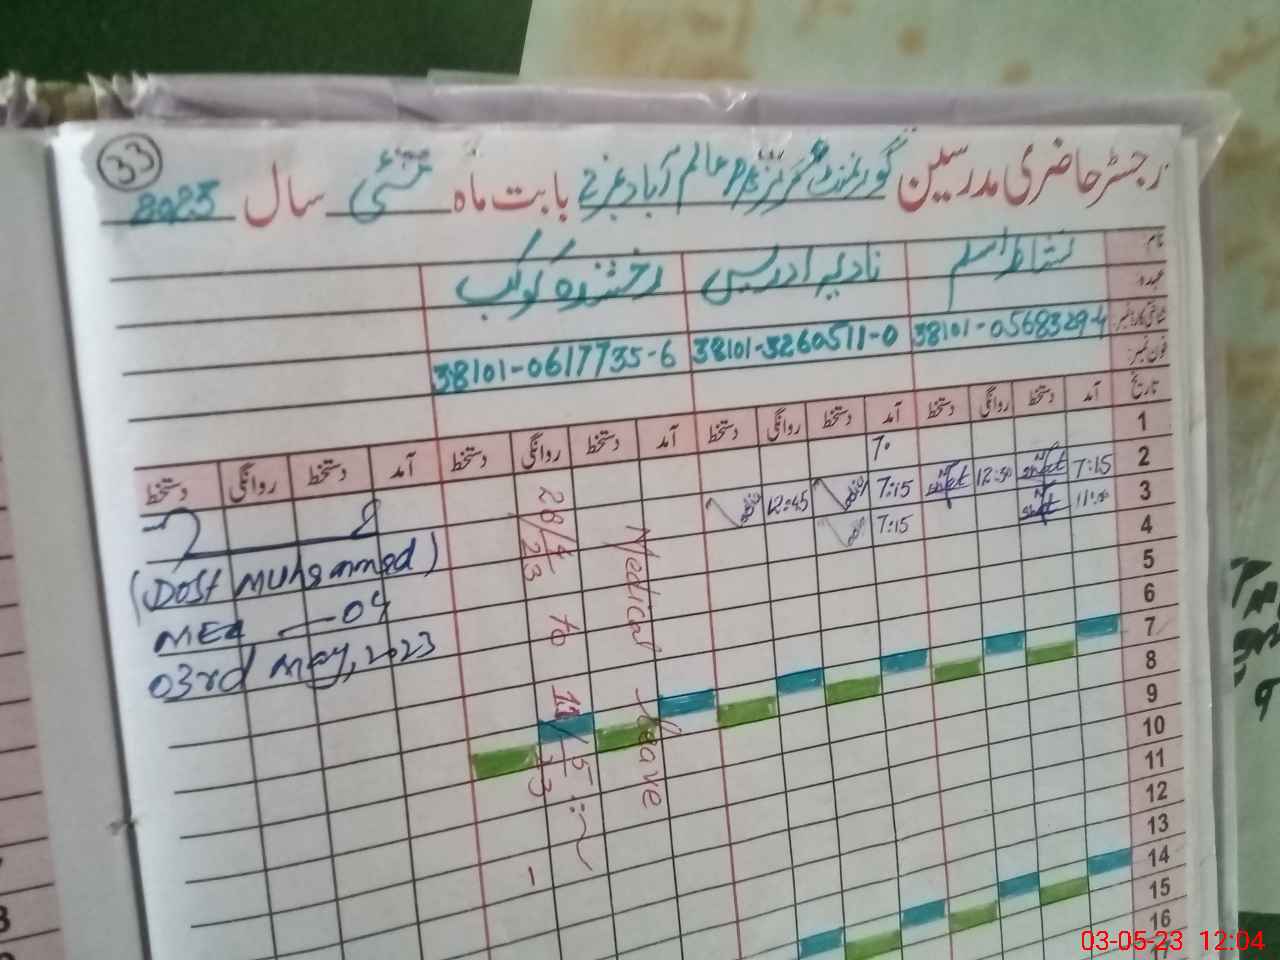 33
رجسٹر حاضری مدرسین گورنمنٹ گرلز عالم آباد بابت ماہ مئی سال 2023
نام
نشاط اسلم
نادیہ ادریس
رخشندہ کوکب
عہدہ
شناختی کارڈ نمبر
38101-0568329-4
38101-3260511-0
38101-0617735-6
فون نمبر
تاریخ آمد دستخط روانگی دستخط آمد دستخط روانگی دستخط آمد دستخط روانگی دستخط آمد دستخط روانگی دستخط
1
2 7:15 12:30 7:15 12:45
3 7:15
4
5
6
7
8
9
10
11
12
13
14
15
16
17
Medical leave
28/4/23 to 11/5/23
(Dost Muhammad)
MEA — 04
03rd May, 2023
03-05-23 12:04